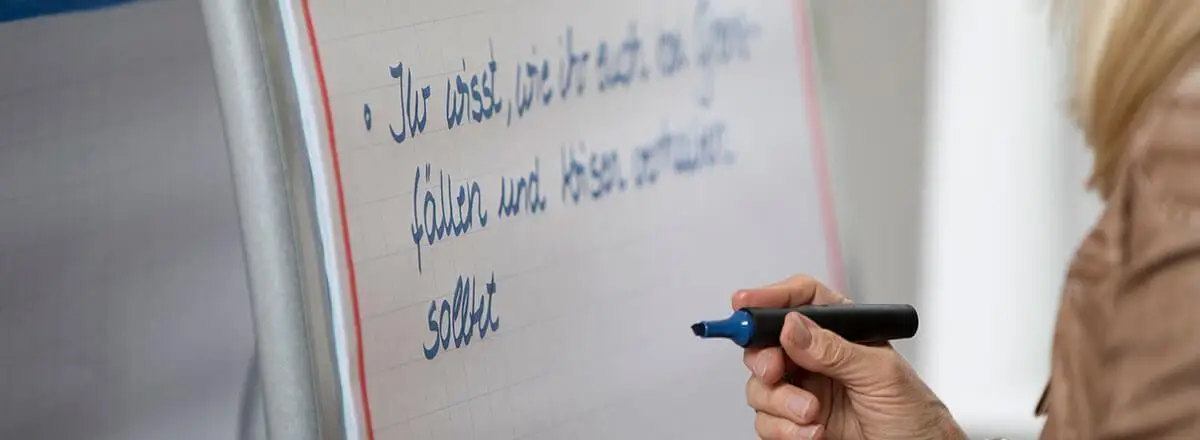 • Ihr wisst, wie ihr euch Grenz-
fällen und Krisen verhalten
solltet